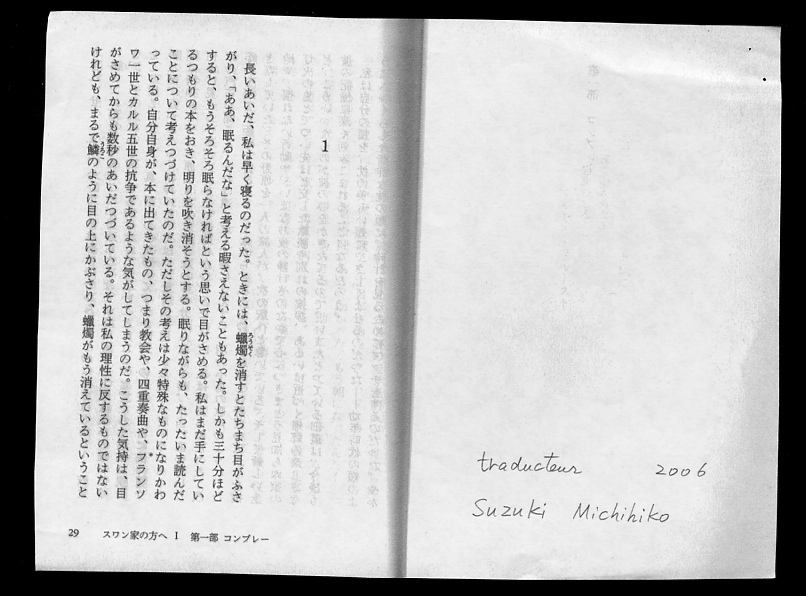 1
長いあいだ、私は早く寝るのだった。ときには、蠟燭を消すとたちまち目がふさ
がり、「ああ、眠るんだな」と考える暇さえないこともあった。しかも三十分ほど
すると、もうそろそろ眠らなければという思いで目がさめる。私はまだ手にしてい
るつもりの本をおき、明りを吹き消そうとする。眠りながらも、たったいま読んだ
ことについて考えつづけていたのだ。ただしその考えは少々特殊なものになりかわ
っている。自分自身が、本に出てきたもの、つまり教会や、四重奏曲や、フランソ
ワ一世とカルル五世の抗争であるような気がしてしまうのだ。こうした気持は、目
がさめてからも数秒のあいだつづいている。それは私の理性に反するものではない
けれども、まるで鱗のように目の上にかぶさり、蠟燭がもう消えているということ
29 スワン家の方へ I 第一部 コンブレー
traducteur 2006
Suzuki Michihiko